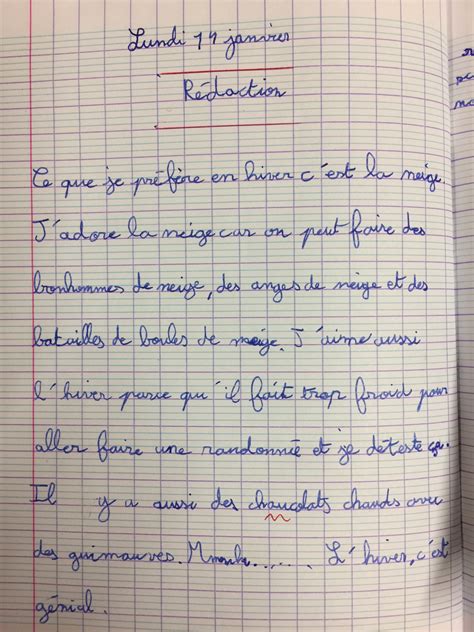 Lundi 14 janvier
Rédaction
Ce que je préfère en hiver c'est la neige.
J'adore la neige car on peut faire des
bonhommes de neige, des anges de neige et des
batailles de boules de neige. J'aime aussi
l'hiver parce qu'il fait trop froid pour
aller faire une randonnié et je déteste ça.
Il y a aussi des chaucolats chauds avec
des guimauves. Mmmh...... L'hiver, c'est
génial.